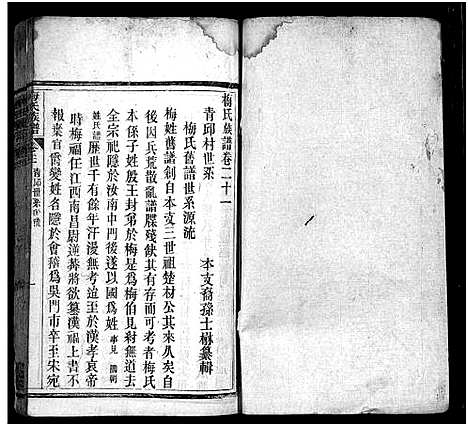 梅氏族譜卷二十一
青邱村世系
本支裔孫士楙纂輯
梅氏舊譜世系源流
梅姓舊譜創自本支三世祖楚材公其來久矣自
後因兵荒散亂譜牒殘缺其有存而可考者梅氏
本係子姓殷王封弟於梅是為梅伯見紂無道去
全宗祀隱於汝南中門後遂以國為姓 事見
姓氏譜 歷世千有餘年汗漫無考迨至於漢孝哀帝
時梅福任江西南昌尉逆莽將欲纂漢福上書不
報棄官變姓名隱於會稽為吳門市卒至宋宛
梅氏族譜
青邱世系